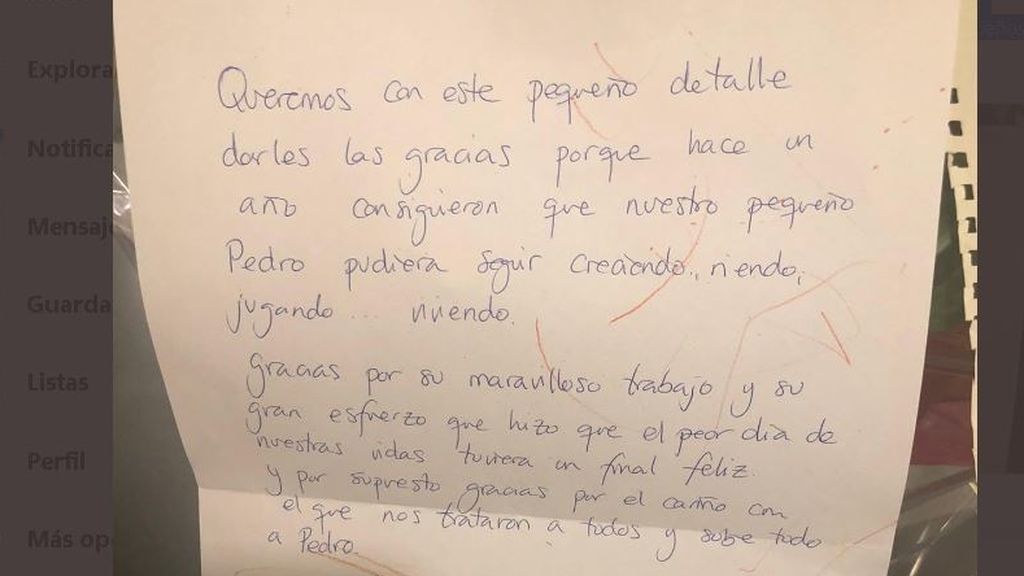 Explora
Notifica
Mensaj
Guarda
Listas
Perfil
Más op
Queremos con este pequeño detalle
darles las gracias porque hace un
año consiguieron que nuestro pequeño
Pedro pudiera seguir creciendo, riendo,
jugando... viviendo.
gracias por su maravilloso trabajo y su
gran esfuerzo que hizo que el peor dia de
nuestras vidas tuviera un final feliz.
y por supuesto gracias por el cariño con
el que nos trataron a todos y sobre todo
a Pedro.